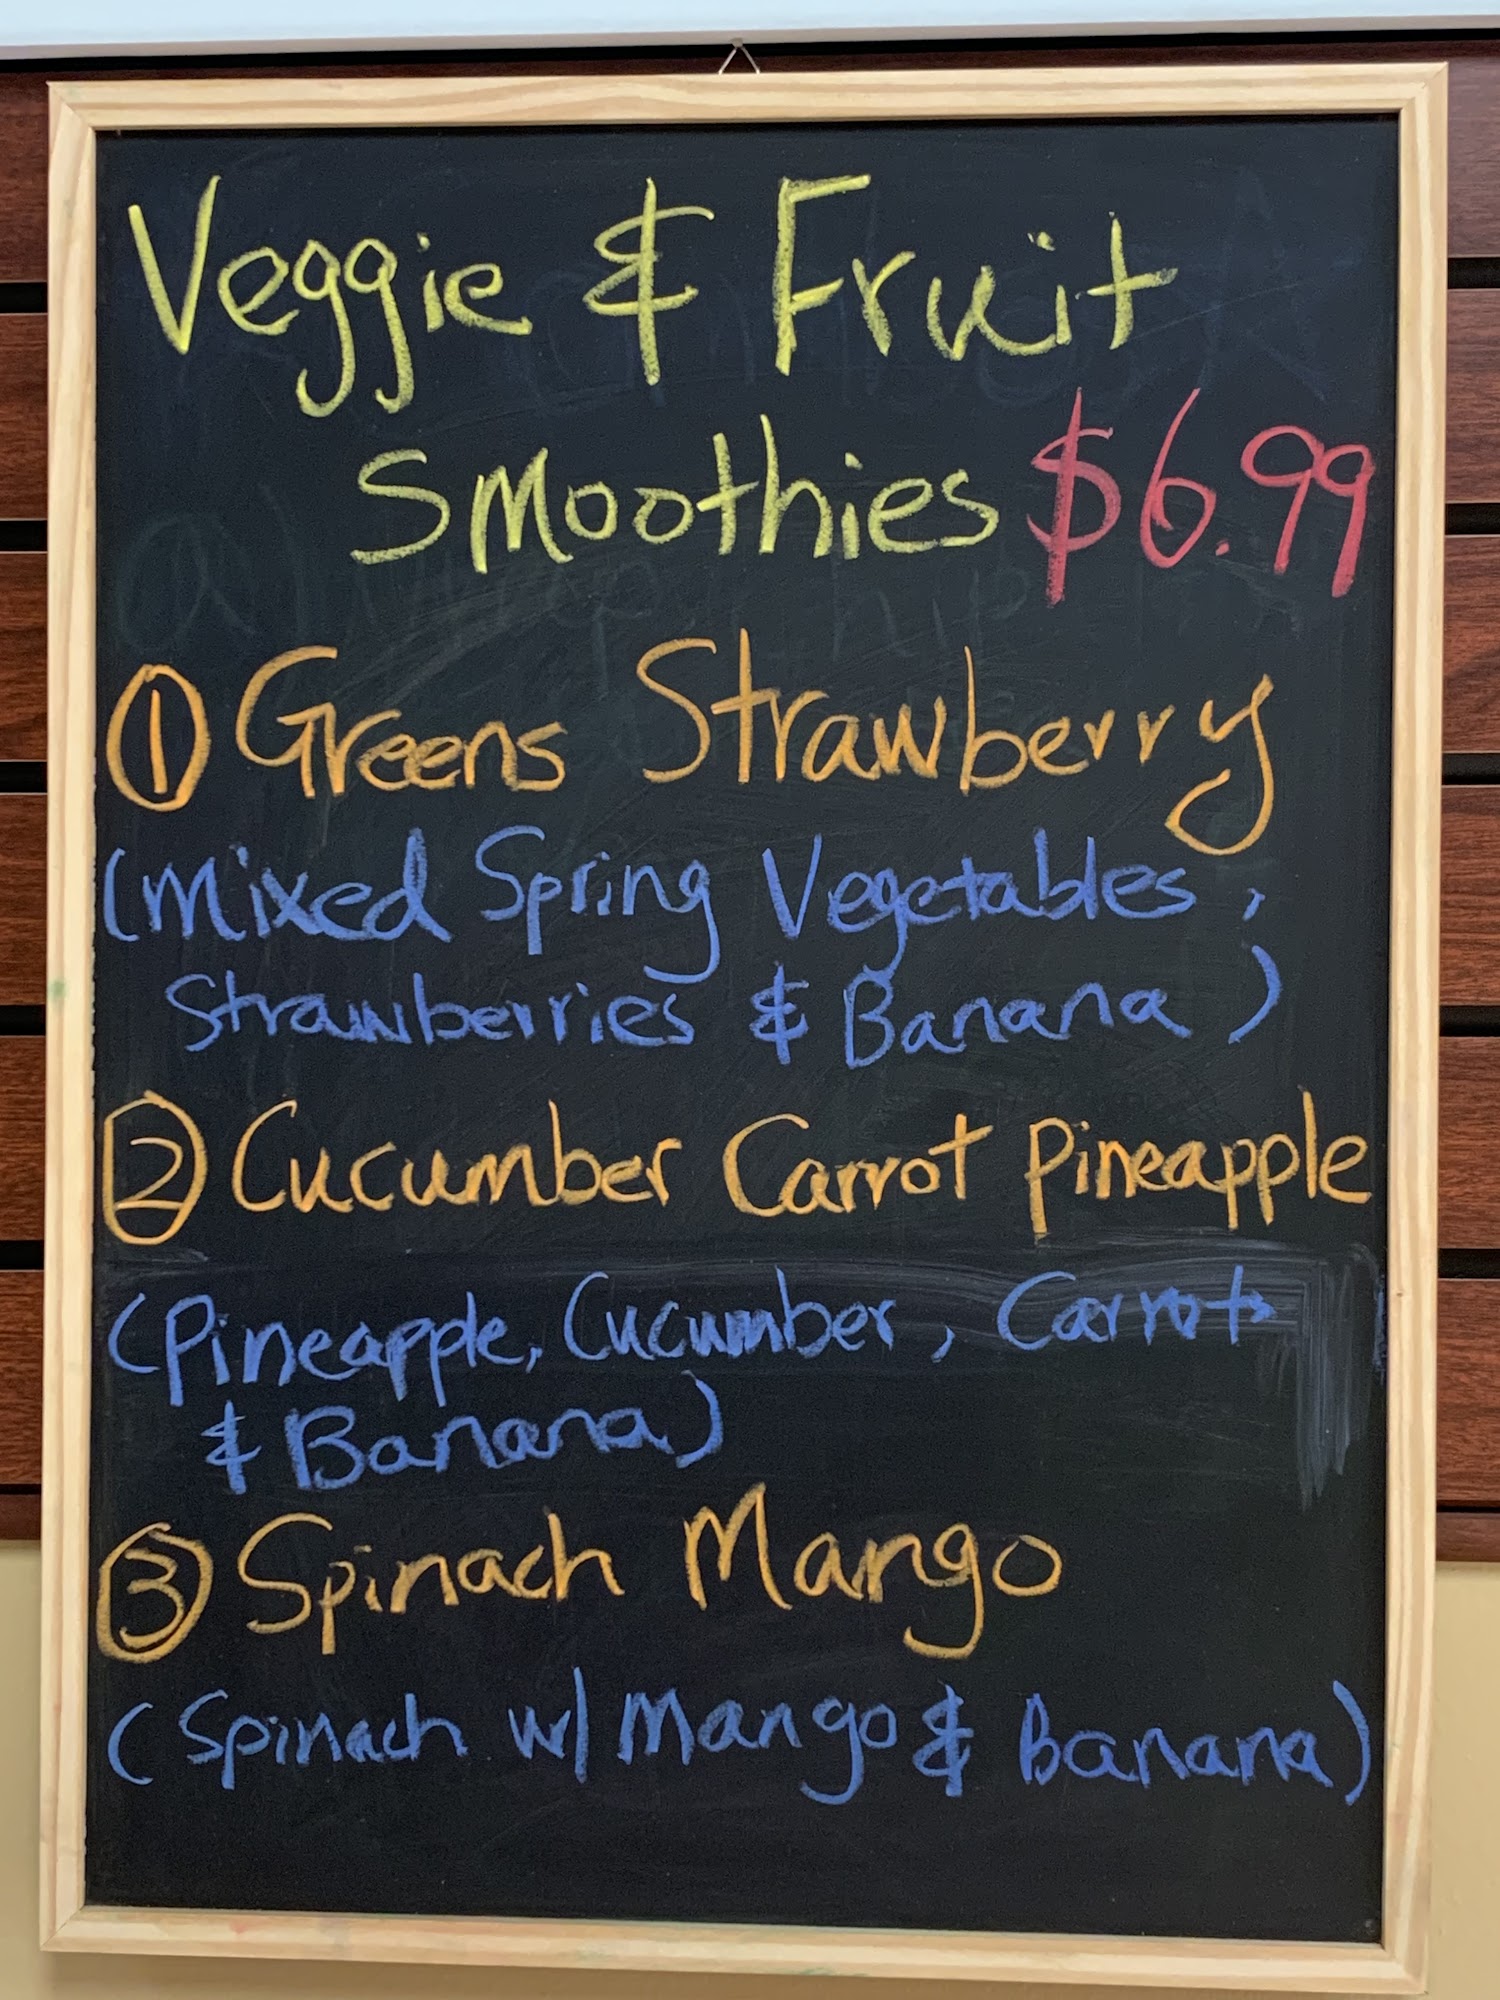 Veggie & Fruit
Smoothies $6.99
① Greens Strawberry
(Mixed Spring Vegetables,
Strawberries & Banana)
② Cucumber Carrot Pineapple
(Pineapple, Cucumber, Carrots
& Banana)
③ Spinach Mango
(Spinach w/ Mango & Banana)